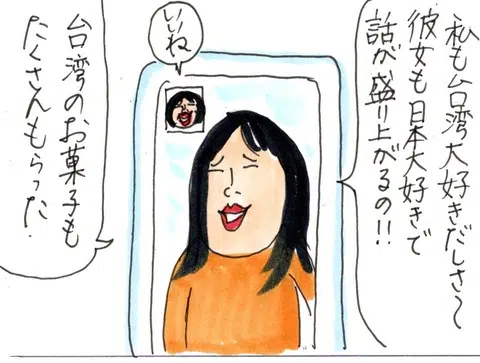 私も台湾大好きだしさ〜
彼女も日本大好きで
話が盛り上がるの!!
いいね
台湾のお菓子も
たくさんもらった.